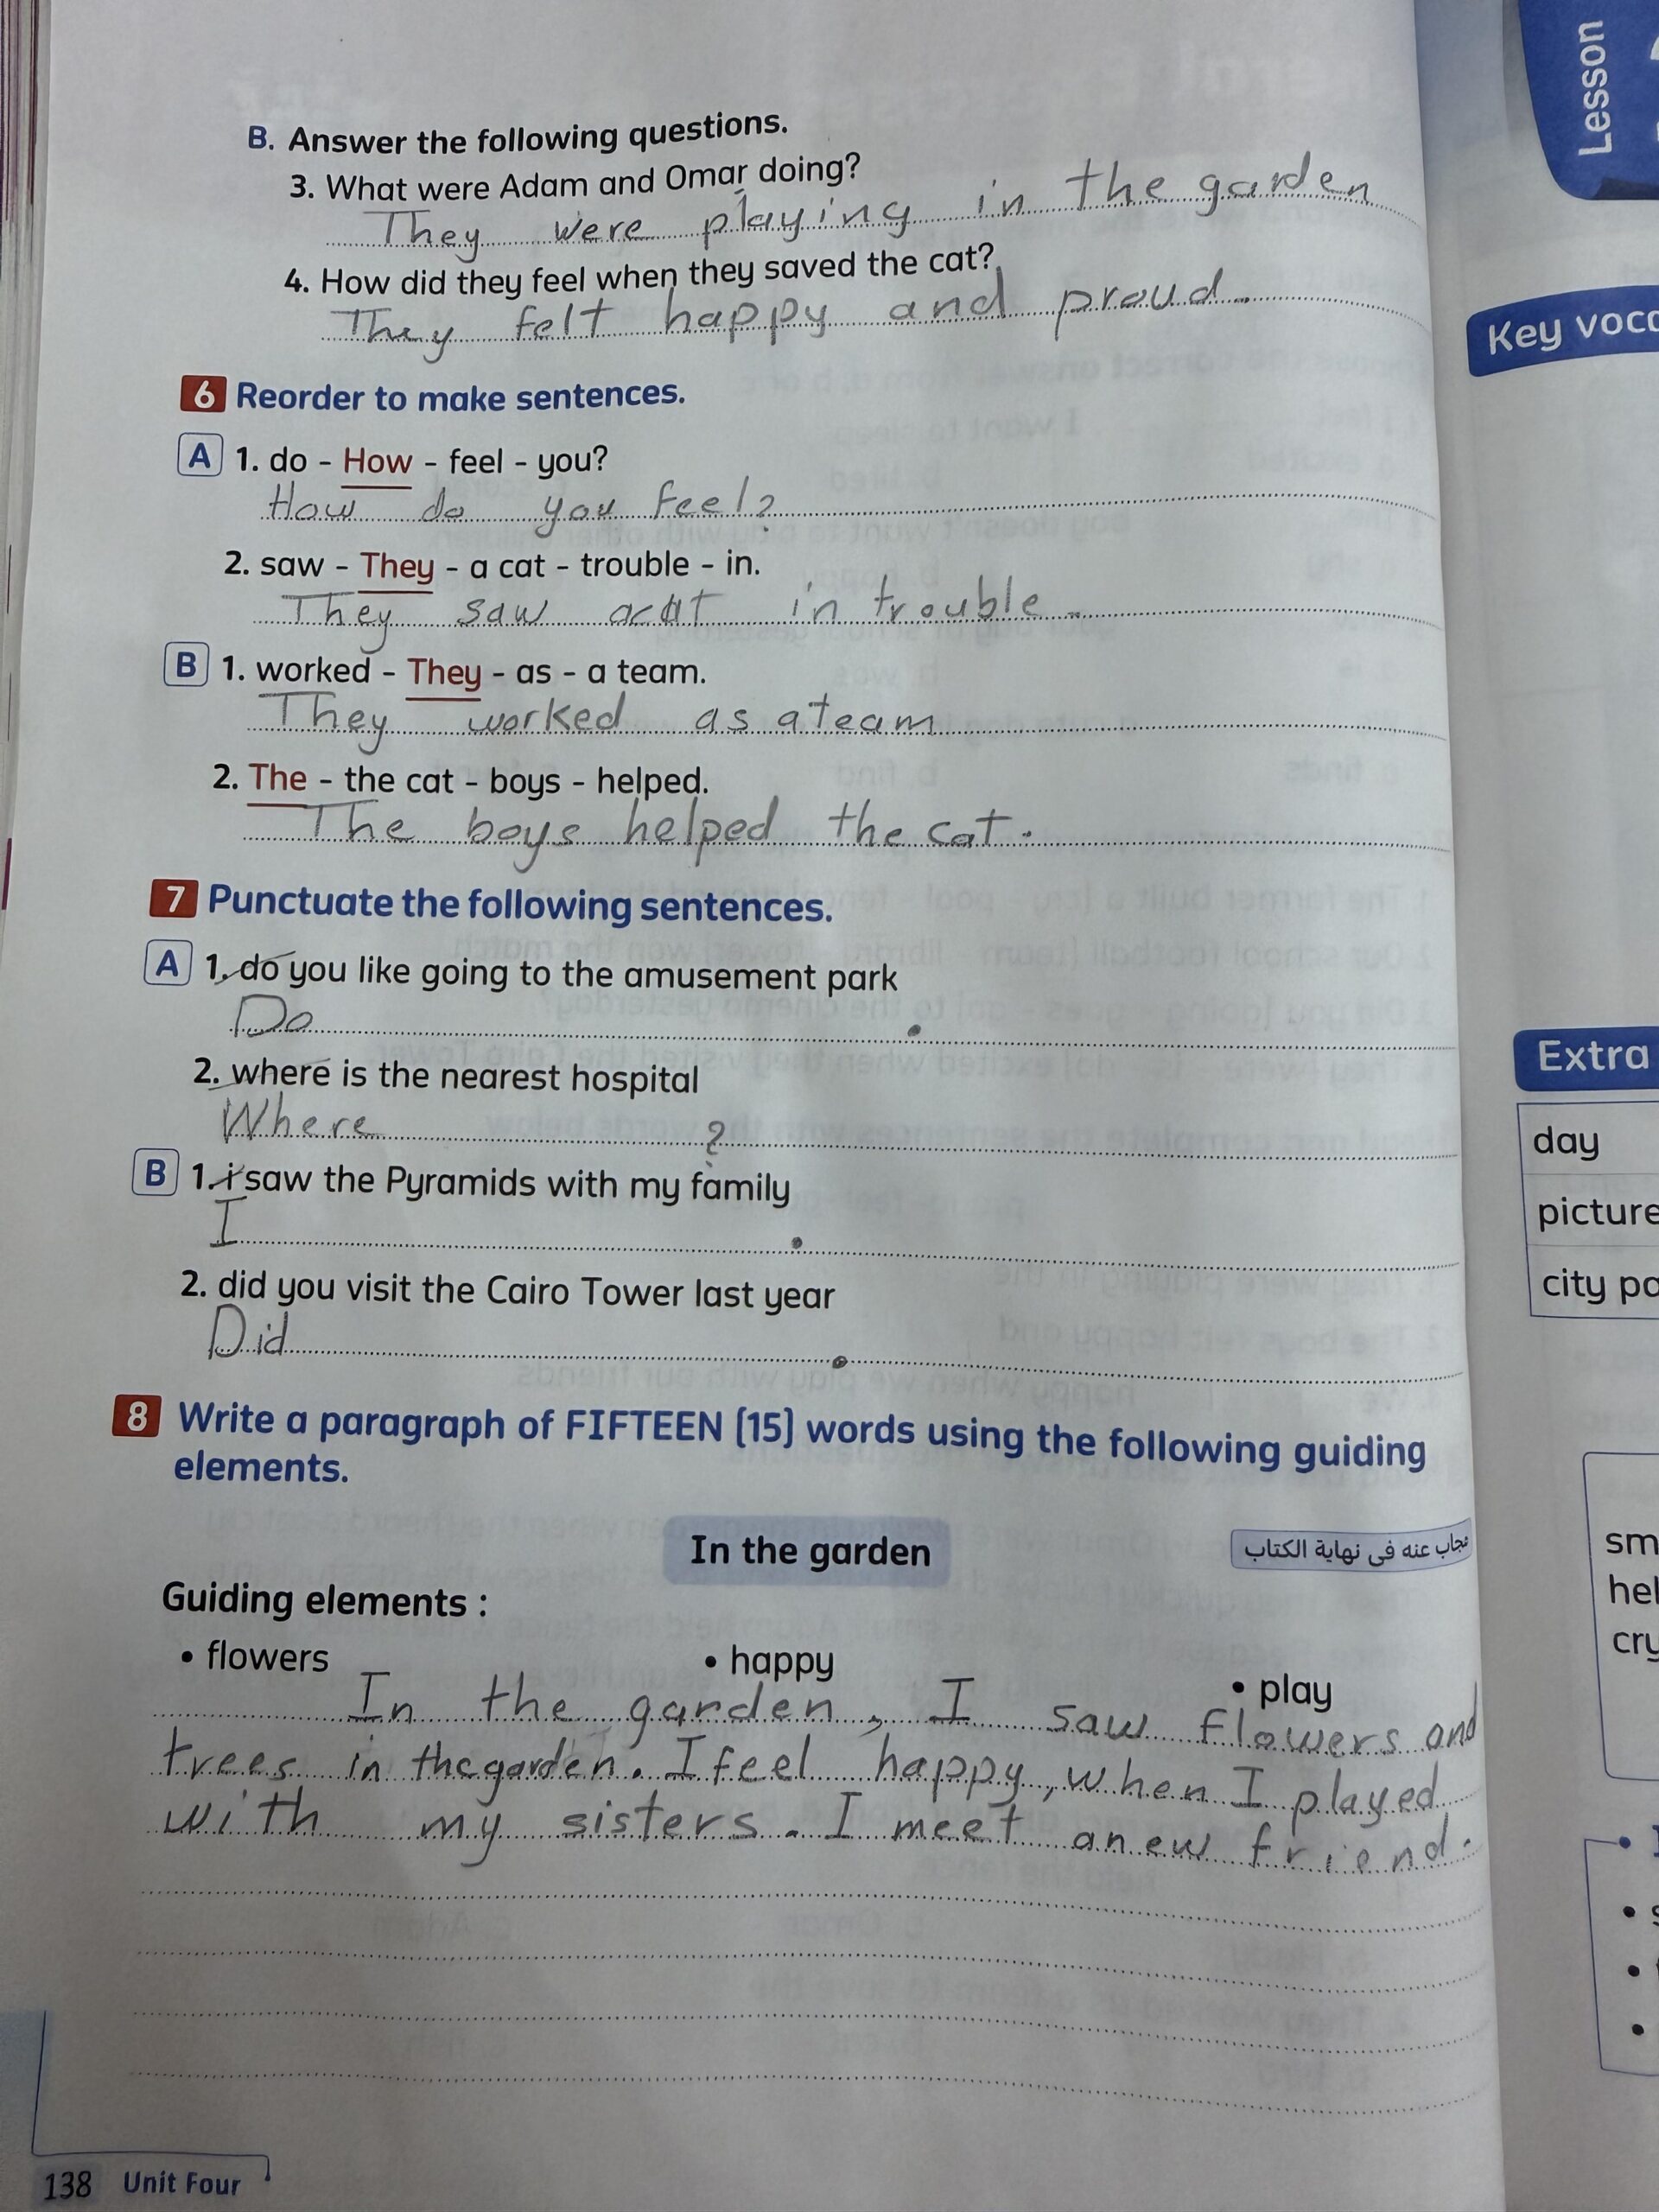 B. Answer the following questions.
3. What were Adam and Omar doing?
They were playing in the garden
4. How did they feel when they saved the cat?
They felt happy and proud.
6 Reorder to make sentences.
A 1. do - How - feel - you?
How do you feel?
2. saw - They - a cat - trouble - in.
They saw acat in trouble.
B 1. worked - They - as - a team.
They worked as ateam
2. The - the cat - boys - helped.
The boys helped the cat.
7 Punctuate the following sentences.
A 1. do you like going to the amusement park
Do .
2. where is the nearest hospital
Where ?
B 1. i saw the Pyramids with my family
I .
2. did you visit the Cairo Tower last year
Did .
8 Write a paragraph of FIFTEEN (15) words using the following guiding
elements.
In the garden
مجاب عنه فى نهاية الكتاب
Guiding elements :
• flowers • happy • play
In the garden, I saw flowers and
trees in the garden. I feel happy, when I played
with my sisters. I meet anew friend.
138 Unit Four
Lesson
Key
Extra
day
picture
city